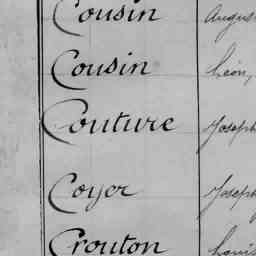 Cousin Augus
Cousin Léon,
Couture Joseph
Coyer Joseph
Crouton Louis